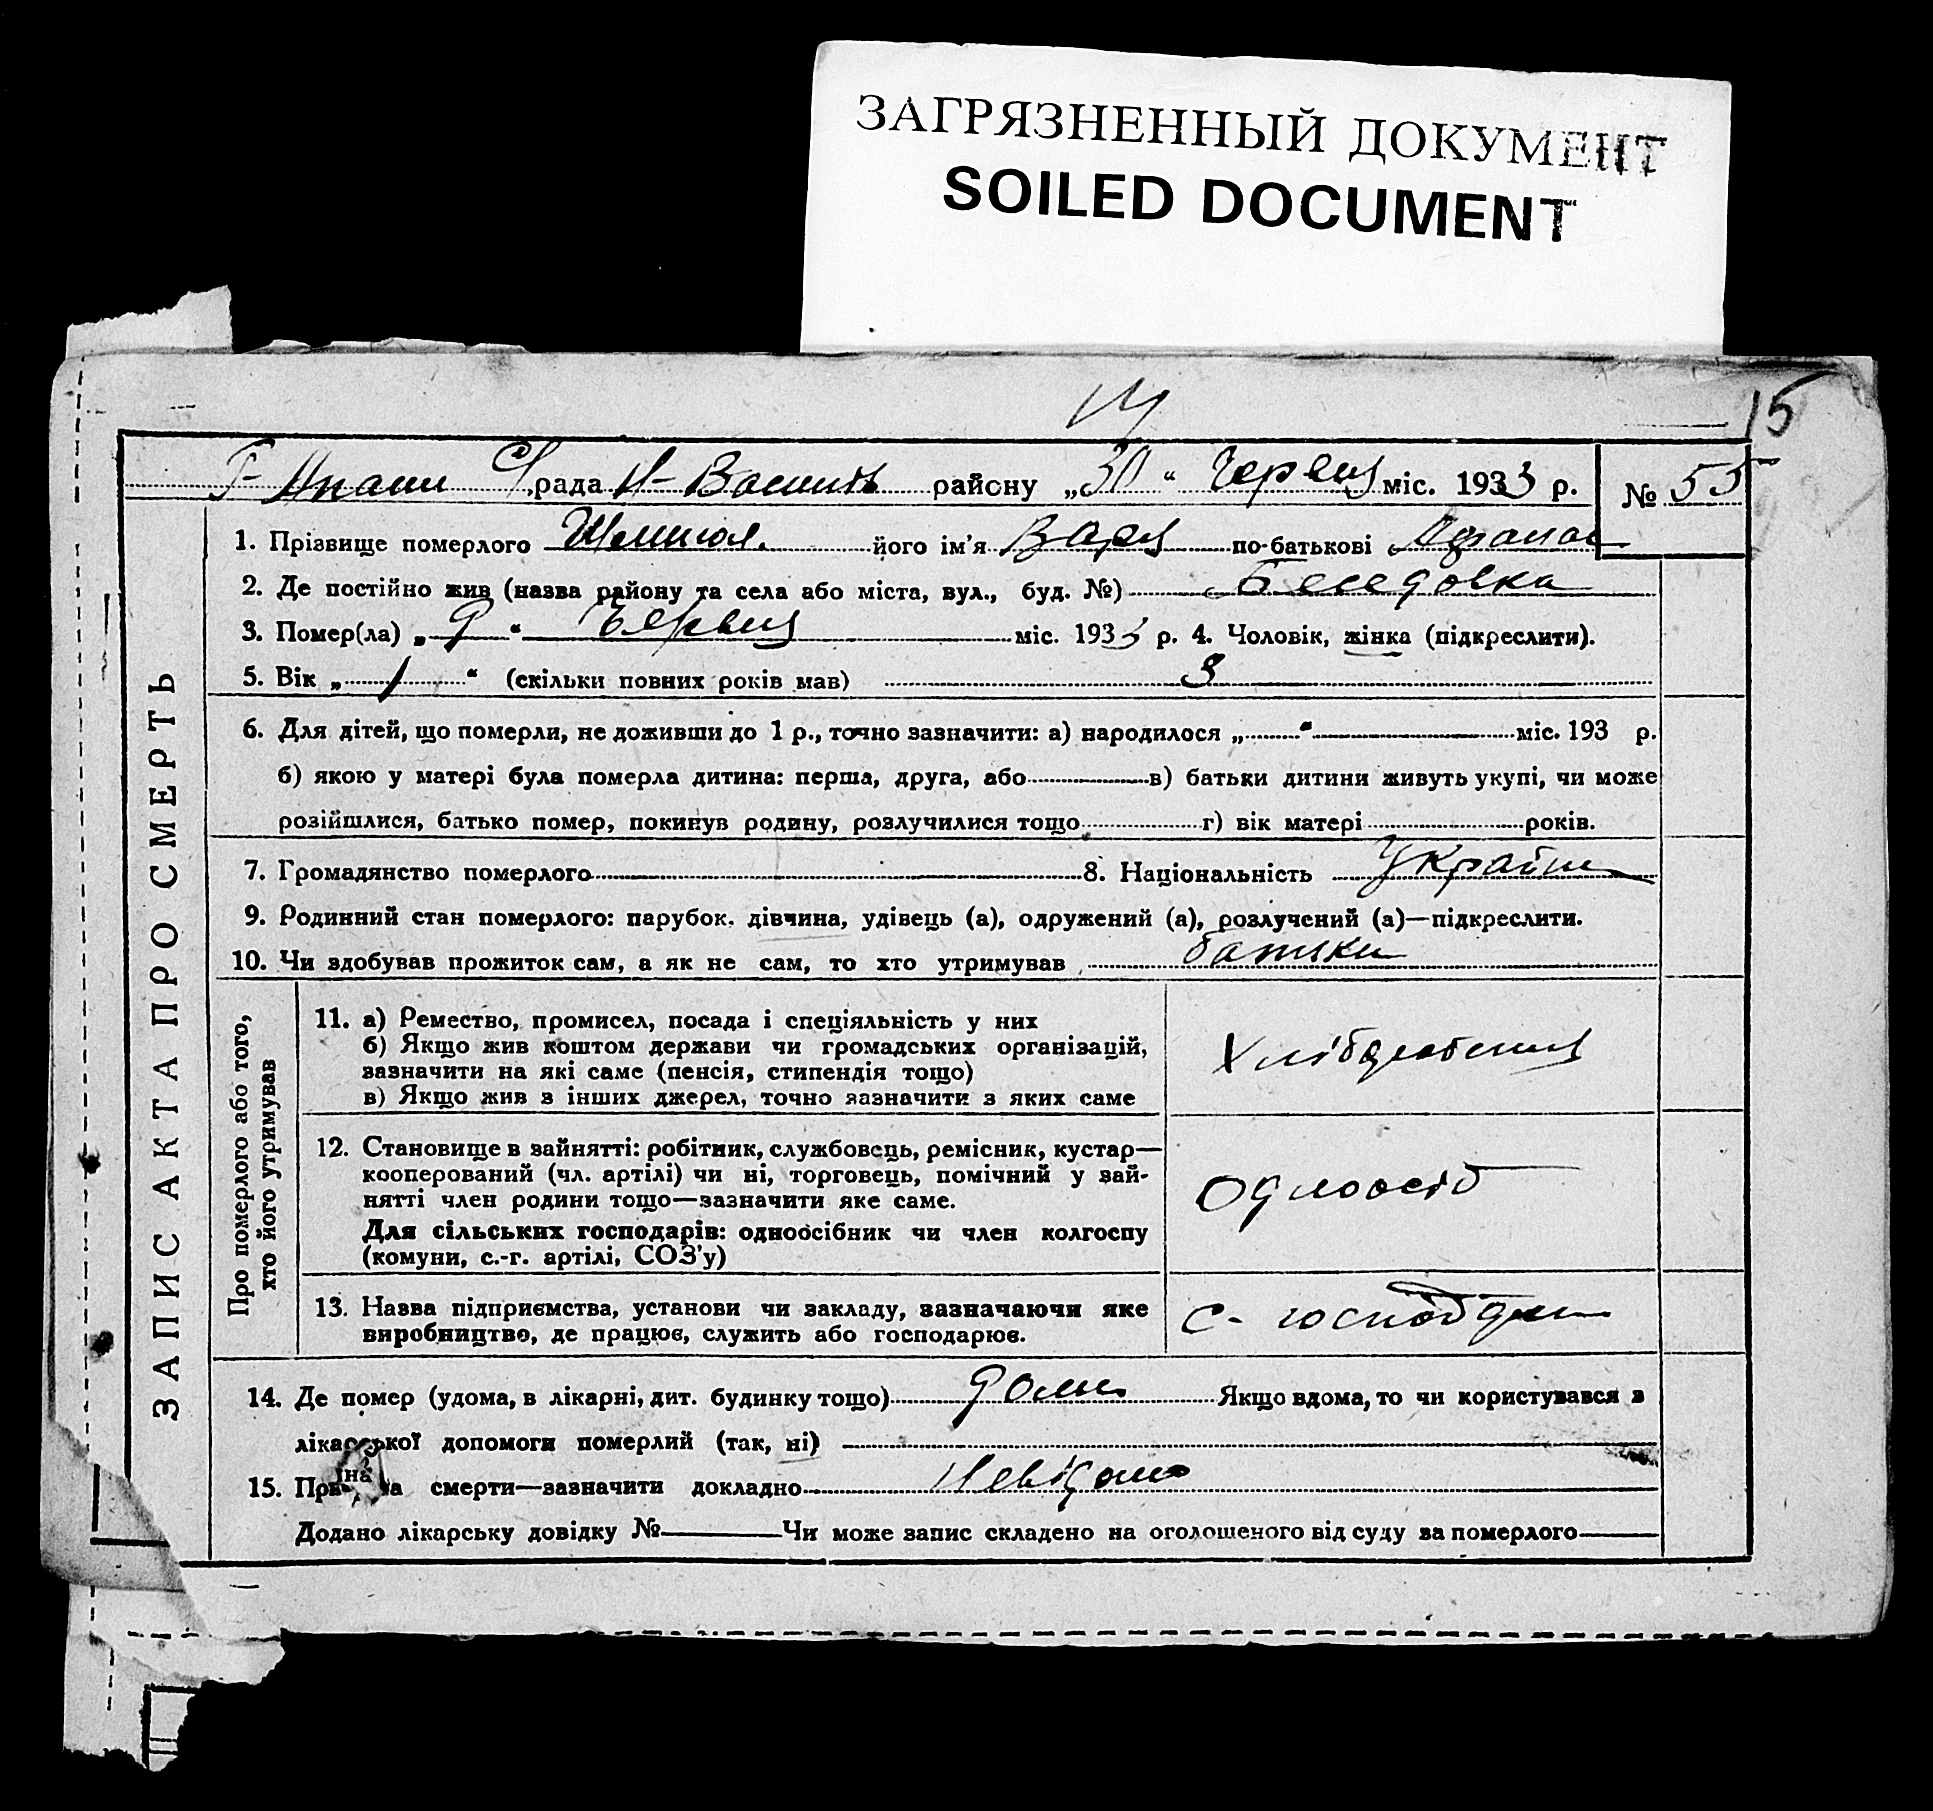 ЗАГРЯЗНЕННЫЙ ДОКУМЕНТ
SOILED DOCUMENT
15
рада району „30“ Червня міс. 1933 р. № 55
ЗАПИС АКТА ПРО СМЕРТЬ
1. Прізвище померлого його ім'я Варя по-батькові Афанас
2. Де постійно жив (назва району та села або міста, вул., буд. №) Беседовка
3. Помер(ла) „9“ Червня міс. 1933 р. 4. Чоловік, жінка (підкреслити).
5. Вік „ “ (скільки повних років мав) 3
6. Для дітей, що померли, не доживши до 1 р., точно зазначити: а) народилося „ “ міс. 193 р.
б) якою у матері була померла дитина: перша, друга, або в) батьки дитини живуть укупі, чи може
розійшлися, батько помер, покинув родину, розлучилися тощо г) вік матері років.
7. Громадянство померлого 8. Національність Україн
9. Родинний стан померлого: парубок, дівчина, удівець (а), одружений (а), розлучений (а)—підкреслити.
10. Чи здобував прожиток сам, а як не сам, то хто утримував батьки
Про померлого або того,
хто його утримував
11. а) Ремество, промисел, посада і спеціяльність у них
б) Якщо жив коштом держави чи громадських організацій,
зазначити на які саме (пенсія, стипендія тощо)
в) Якщо жив з інших джерел, точно зазначити з яких саме
12. Становище в зайнятті: робітник, службовець, ремісник, кустар—
кооперований (чл. артілі) чи ні, торговець, помічний у зай-
нятті член родини тощо—зазначити яке саме.
Для сільських господарів: одноосібник чи член колгоспу
(комуни, с.-г. артілі, СОЗ'у)
Одноосіб
13. Назва підприємства, установи чи закладу, зазначаючи яке
виробництво, де працює, служить або господарює.
14. Де помер (удома, в лікарні, дит. будинку тощо) дома Якщо вдома, то чи користувався з
лікарської допомоги померлий (так, ні)
15. смерти—зазначити докладно невідомо
Додано лікарську довідку № Чи може запис складено на оголошеного від суду за померлого